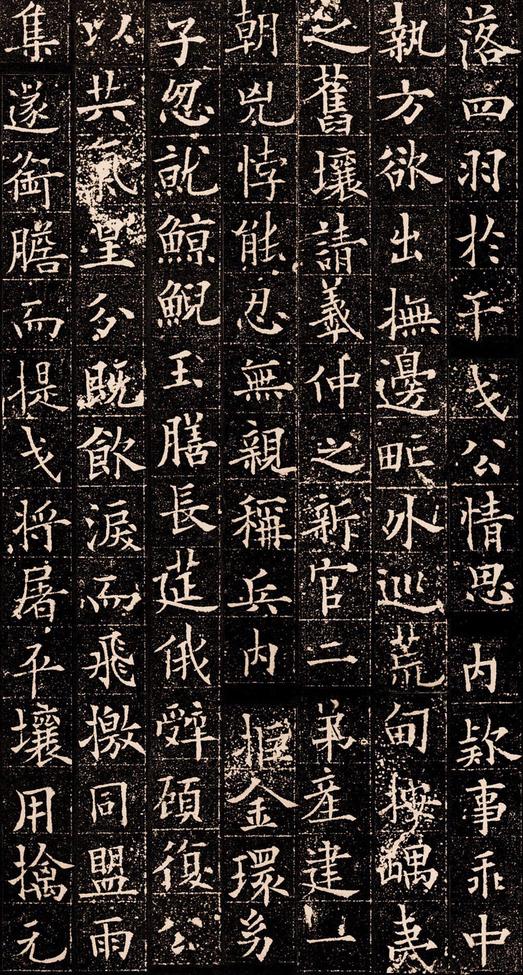 落四羽於干戈公情思内欵事乖中
執方欲出撫邊甿外巡荒甸按嵎夷
之舊壤請羲仲之新官二弟産建一
朝兇悖能忍無親稱兵内拒金環幼
子忽就鯨鯢玉膳長莚俄辝顧復公
以共氣星分既飲淚而飛檄同盟雨
集遂銜膽而提戈將屠平壤用擒元